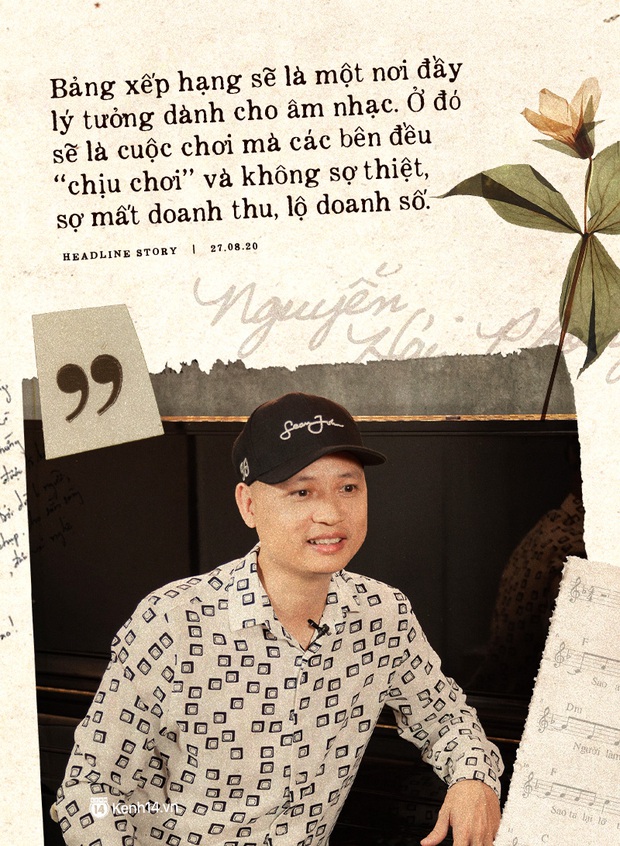 Bảng xếp hạng sẽ là một nơi đầy
lý tưởng dành cho âm nhạc. Ở đó
sẽ là cuộc chơi mà các bên đều
“chịu chơi” và không sợ thiệt,
sợ mất doanh thu, lộ doanh số.
HEADLINE STORY | 27.08.20
Nguyễn
Hải
”
F
Sao
Dm
Người làm
F
Sao ta lại lỡ
C
Kenh14.vn